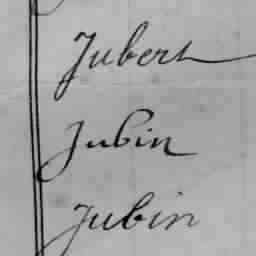 Jubert
Jubin
Jubin